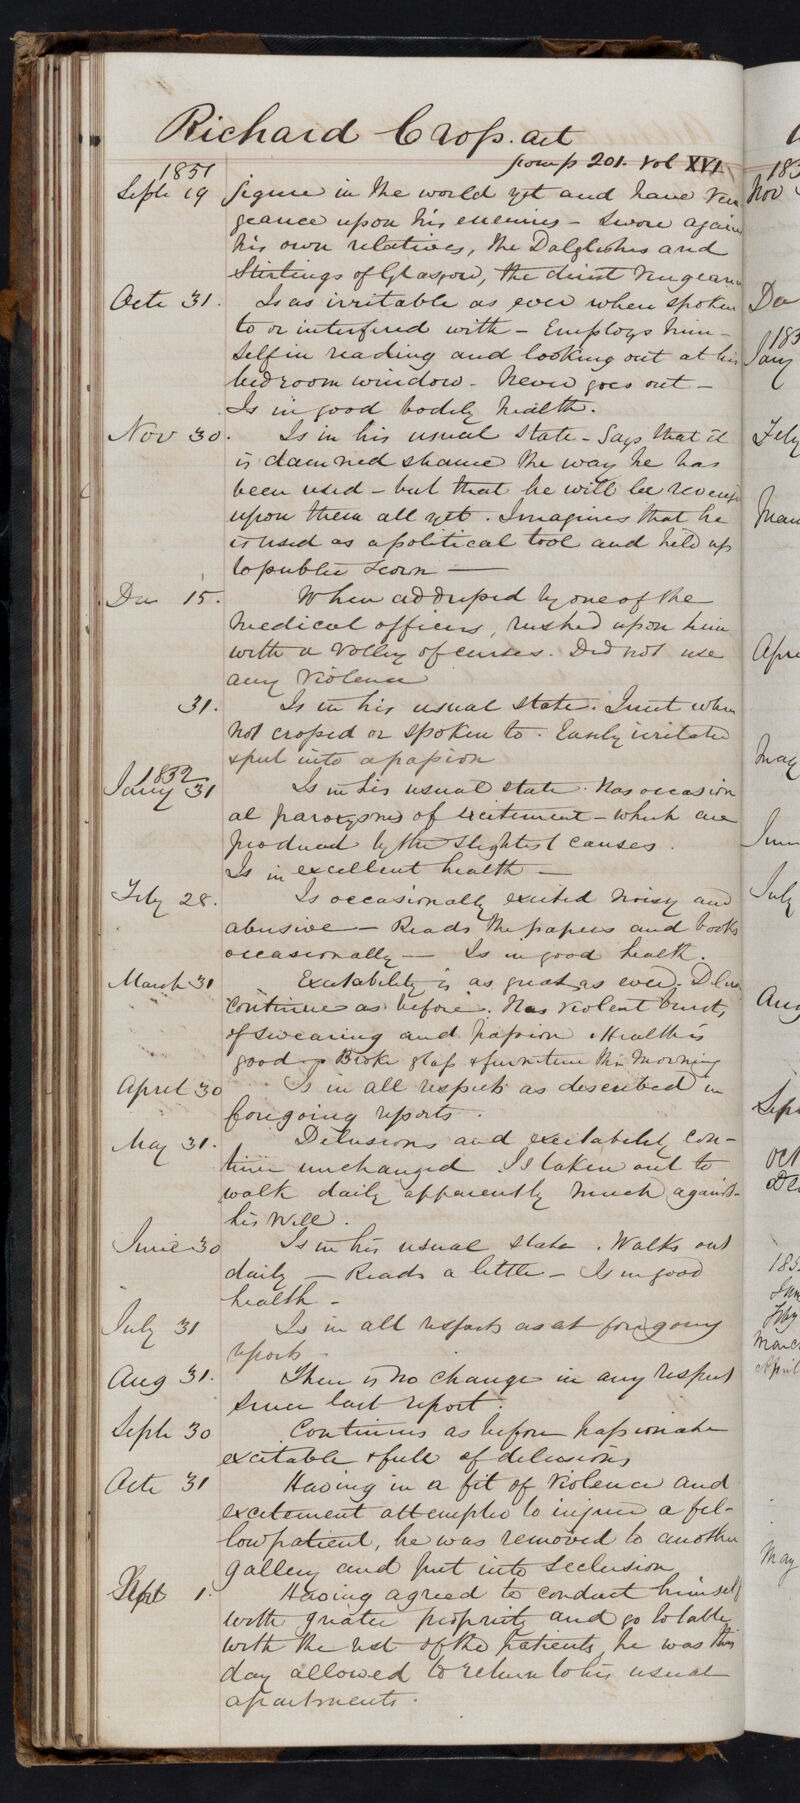 Richard Cross. aet
from p 201. Vol XVI
1851
Septr 19 figure in the world yet and have ven
geance upon his enemies – Swore again
his own relatives, the Dalglishes and
Stirlings of Glasgow, the direst vengean
Octr 31. Is as irritable as ever when spoken
to or interfered with – Employs him-
self in reading and looking out at his
bedroom window. Never goes out –
Is in good bodily health.
Nov 30. Is in his usual state – Says that it
is damned shame the way he has
been used – but that he will be reveng
upon them all yet. Imagines that he
is used as a political tool and held up
to public scorn —
Dec 15. When addressed by one of the
medical officers, rushed upon him
with a volley of curses. Did not use
any violence
31. Is in his usual state. Quiet when
not crossed or spoken to. Easily irritated
& put into a passion
1852
Jany 31 Is in his usual state. Has occasion
al paroxysms of excitement – which are
produced by the slightest causes.
Is in excellent health —
Feby 28. Is occasionally excited noisy and
abusive – Reads the papers and books
occasionally — Is in good health.
March 31 Excitability is as great as ever. Delus
continue as before. Has violent bursts
of swearing and passion. Health is
good. Broke glass & furniture this morning
April 30 Is in all respects as described in
foregoing reports.
May 31. Delusions and excitability con-
tinue unchanged. Is taken out to
walk daily apparently much against
his will.
June 30 Is in his usual state. Walks out
daily — Reads a little – Is in good
health –
July 31 Is in all respects as at foregoing
reports
Aug 31. There is no change in any respect
since last report.
Septr 30 Continues as before passionate
excitable & full of delusions
Octr 31 Having in a fit of violence and
excitement attempted to injure a fel-
low patient, he was removed to another
gallery and put into seclusion
1. Having agreed to conduct himself
with greater propriety and go to table
with the rest of the patients, he was this
day allowed to return to his usual
apartments.
185
Nov
De
185
Jany
Feby
Mar
Apri
May
June
July
Aug
Sept
Oct
De
185
Jan
Feby
March
April
May